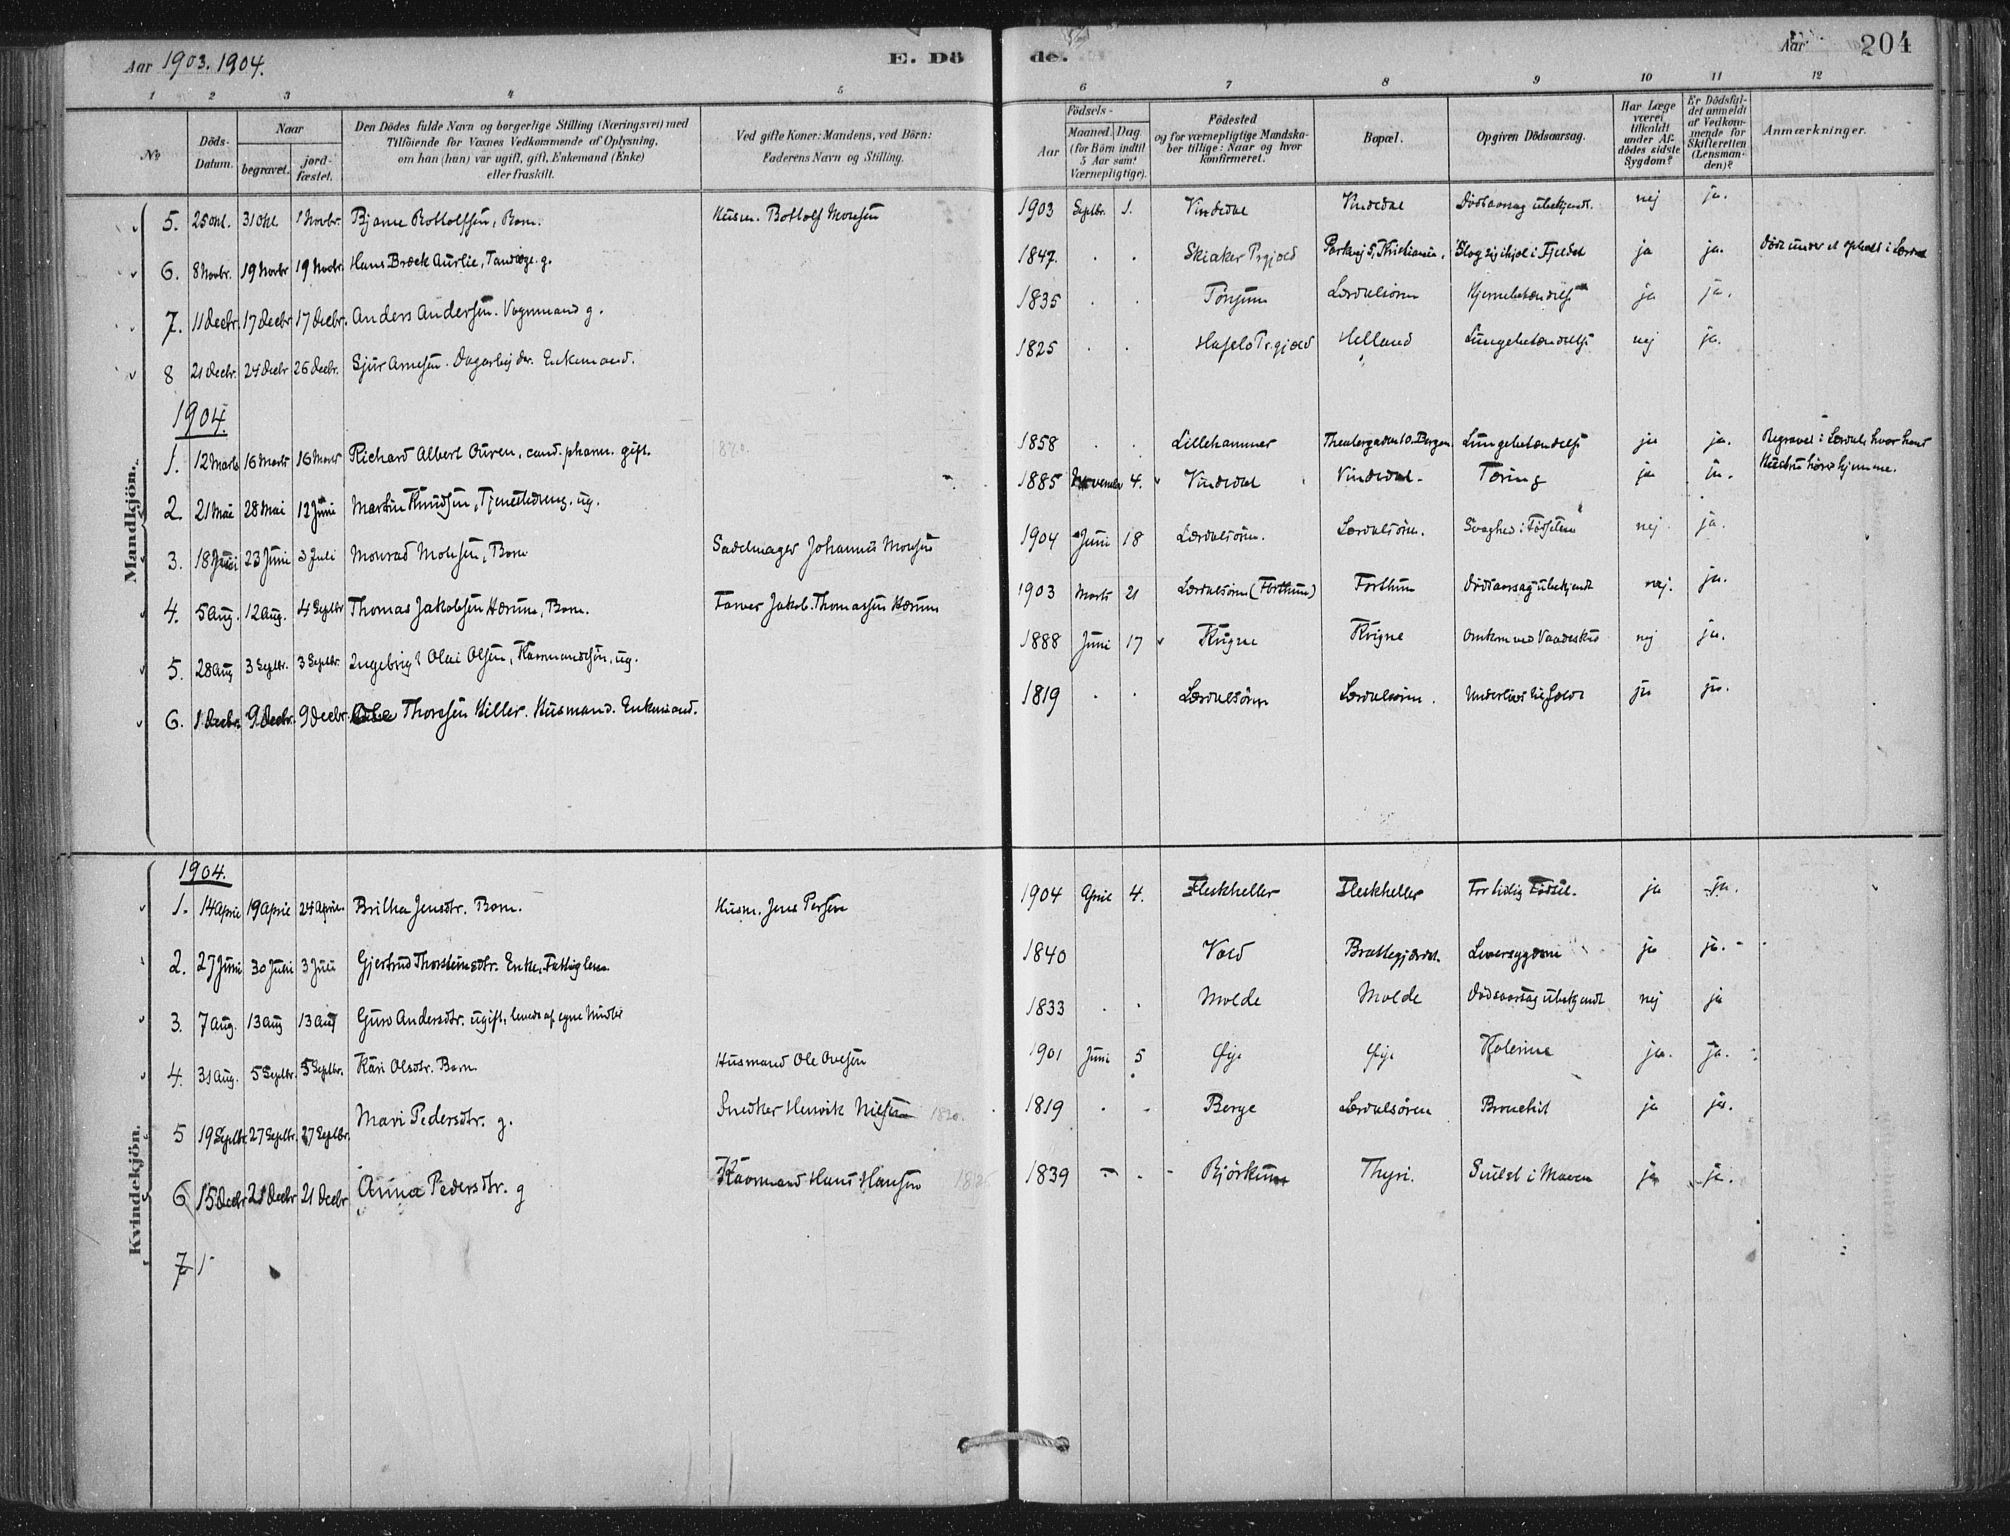 Aar 1903. 1904.
E. Dö
de.
Aar
204
1 2 3 4 5 6 7 8 9 10 11 12
No
Döds-Datum.
Naar
begravet.
jord-fæstet.
Den Dödes fulde Navn og borgerlige Stilling (Næringsvei) med
Tilföiende for Voxnes Vedkommende af Oplysning,
om han (hun) var ugift, gift, Enkemand (Enke)
eller fraskilt.
Ved gifte Koner: Mandens, ved Börn:
Faderens Navn og Stilling.
Födsels-
Aar
Maaned. Dag.
(for Börn indtil 5 Aar samt Værnepligtige).
Födested
og for værnepligtige Mandska-
ber tillige: Naar og hvor
konfirmeret.
Bopæl.
Opgiven Dödsaarsag.
Har Læge været tilkaldt under Af-dödes sidste Sygdom?
Er Dödsfal-det anmeldt af Vedkom-mende for Skifteretten (Lensman-den)?
Anmærkninger.
Mandkjön.
5. 25 Okt. 31 Okt 1 Novbr. Bjarne Bottolfsen, Barn. Husm. Bottolf Monsen 1903 Septbr. 1. Vindedal Vindedal Dödsaarsag ubekjendt. nej ja.
6. 8 Novbr. 19 Novbr 19 Novbr. Hans Bræck Aurlie, Tandlæge. g. 1847. Skiaker Prgjæld Parkvej 5, Kristiania. Slog sig ihjel i Fjeldet ja ja. Döde under et Ophold i Lærdal
7. 11 Decbr. 17 Decbr 17 Decbr. Anders Andersen. Vognmand g. 1835 Tönjum Lærdalsören Hjernebetændelse ja ja.
8 21 Decbr. 24 Decbr 26 Decbr. Sjur Arnesen. Dagarbejder. Enkemand. 1825 Hafslo Pr.gjæld Helland Lungebetændelse nej ja.
1904.
1. 12 Marts 16 Marts 16 Marts Richard Albert Ouren, cand. pharm. gift. 1858 Lillehammer Theatergaden 10. Bergen. Lungebetændelse ja ja. Begravet i Lærdal, hvor hans Hustru hörer hjemme.
2. 21 Mai 28 Mai 12 Juni Martin Knudsen, Tjenestedreng. ug. 1885 November 4. Vindedal Vindedal. Tæring ja ja.
3. 18 Juni 23 Juni 3 Juli Monrad Monsen, Barn Sadelmager Johannes Monsen 1904 Juni 18 Lærdalsören. Lærdalsören. Svaghed i Födselen nej ja.
4. 5 Aug. 12 Aug. 4 Septbr Thomas Jakobsen Hærum, Barn. Farver Jakob Thomassen Hærum 1903 Marts 21 Lærdalsören (Forthun) Forthun Dödsaarsag ubekjendt nej. ja.
5. 28 Aug 3 Septbr. 3 Septbr. Ingebrigt Olai Olsen, Kaarmandssön, ug. 1888 Juni 17 Kvigne Kvigne Omkom ved Vaadeskud nej ja.
6. 1 Decbr. 9 Decbr. 9 Decbr. Thoresen Hiller. Husmand. Enkemand. 1819 Lærdalsören Lærdalsören. Underlivstilfælde ja ja.
Kvindekjön.
1904.
1. 14 April 19 April 24 April. Britha Jensdtr. Barn. Husm. Jens Persen 1904 April 4. Fleskheller Fleskheller For tidlig Födsel. ja ja.
2. 27 Juni 30 Juni 3 Juli Gjertrud Thorsteinsdtr. Enke, Fattiglem. 1840 Vold Brattegjærdet. Leversygdom ja ja.
3. 7 Aug. 13 Aug 13 Aug Guro Andersdtr. ugift, levede af egne Midler 1833 Molde Molde Dödsaarsag ubekjendt nej ja
4. 31 Aug. 5 Septbr. 5 Septbr. Kari Olsdtr. Barn. Husmand Ole Olesen 1901 Juni 5 Øije Øije Kolerine ja. ja.
5 19 Septbr. 27 Septbr. 27 Septbr. Mari Pedersdtr. g. Snedker Henrik Nilsen 1820. 1819 Berge Lærdalsören Bronchit ja ja.
6 15 Decbr 21 Decbr 21 Decbr Anna Pedersdtr. g Kaarmand Hans Hansen 1839 Björkum Thyri. Svulst i Maven ja ja.
7